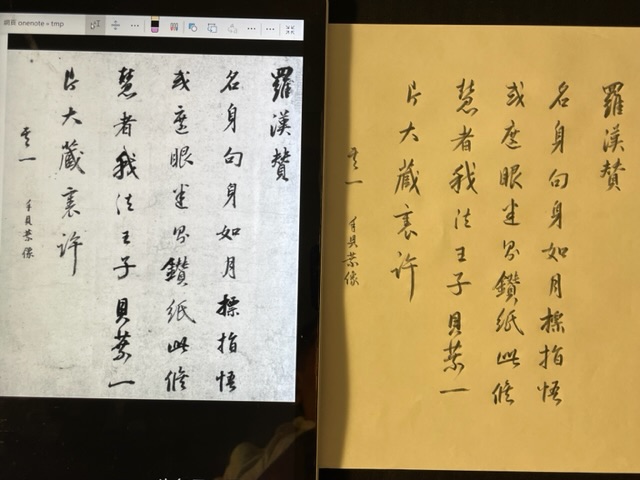 網頁 onenote » tmp
羅漢賛
名身句身如月標指悟
或遮眼迷則鑽紙此修
慧者我法王子貝葉一
片大藏裏許
其一 手貝葉像
羅漢賛
名身句身如月標指悟
或遮眼迷則鑽紙此修
慧者我法王子貝葉一
片大藏裏許
其一 手貝葉像